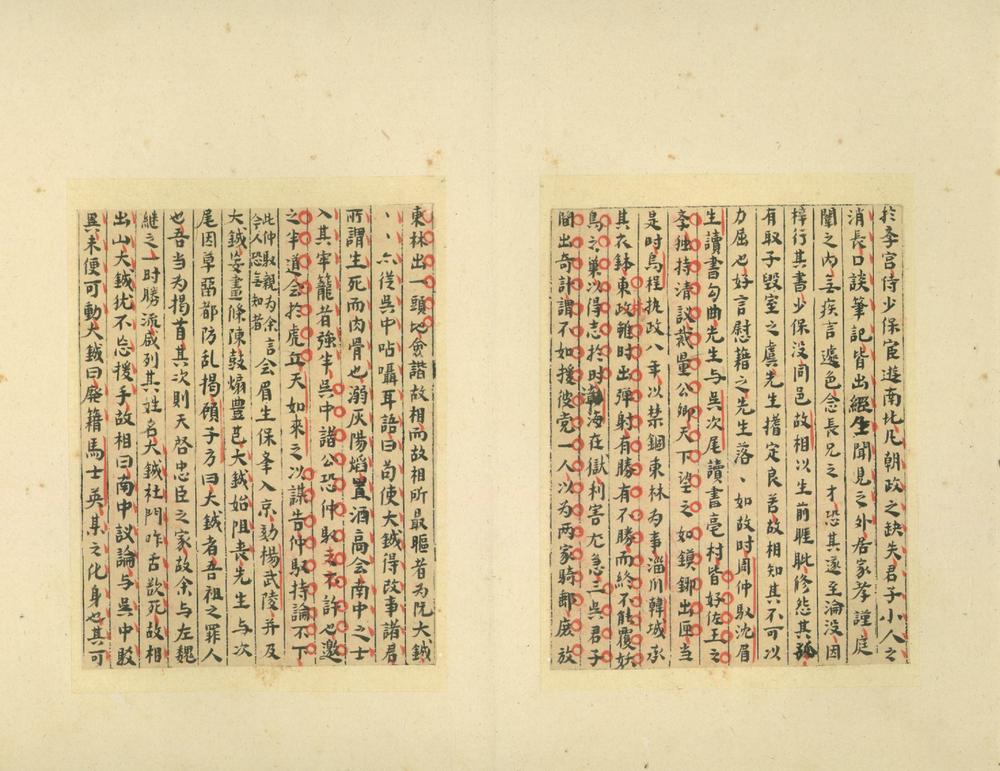 於季宫侍少保宦遊南北凡朝政之缺失君子小人之
消長口談筆記皆出經生聞見之外居家孝謹庭
闈之内無疾言遽色念長兄之才恐其遂至淪没因
梓行其書少保没同邑故相以生前睚眦修怨其孤
有取子毀室之虞先生揩定良苦故相知其不可以
力屈也好言慰藉之先生落、如故時周仲馭沈眉
生讀書勾曲先生与吴次尾讀書亳村皆好佐王之
學獨持清議裁量公卿天下望之如鏌鋣出匣当
是時烏程執政八年以禁錮東林為事淄川韓城承
其衣鉢東政雖时出彈射有勝有不勝而終不能覆妖
鳥之巢以得志於时海在獄利害尤急三吴君子
間出奇計謂不如援彼党一人以为两家騎郵庶放
東林出一頭地僉諧故相而故相所最暱者为阮大鋮
、、六從吴中呫囁耳語曰苟使大鋮得改事諸君
所謂生死而肉骨也溺灰陽焰置酒高会南中之士
入其牢籠者強半吴中諸公恐仲馭之不許也邀
之半道会於虎丘天如來之以誅告仲馭持論不下
此仲馭親为余言会眉生保举入京劾楊武陵并及
令人恐無知者
大鋮妄畫條陳鼓煽豐芑大鋮始阻喪先生与次
尾因草畱都防乱揭顧子方曰大鋮者吾祖之罪人
也吾当为揭首其次則天啓忠臣之家故余与左魏
継之一时勝流咸列其姓名大鋮杜門咋舌欲死故相
出山大鋮犹不忘援手故相曰南中议論与吴中駁
異未便可動大鋮曰廢籍馬士英某之化身也其可